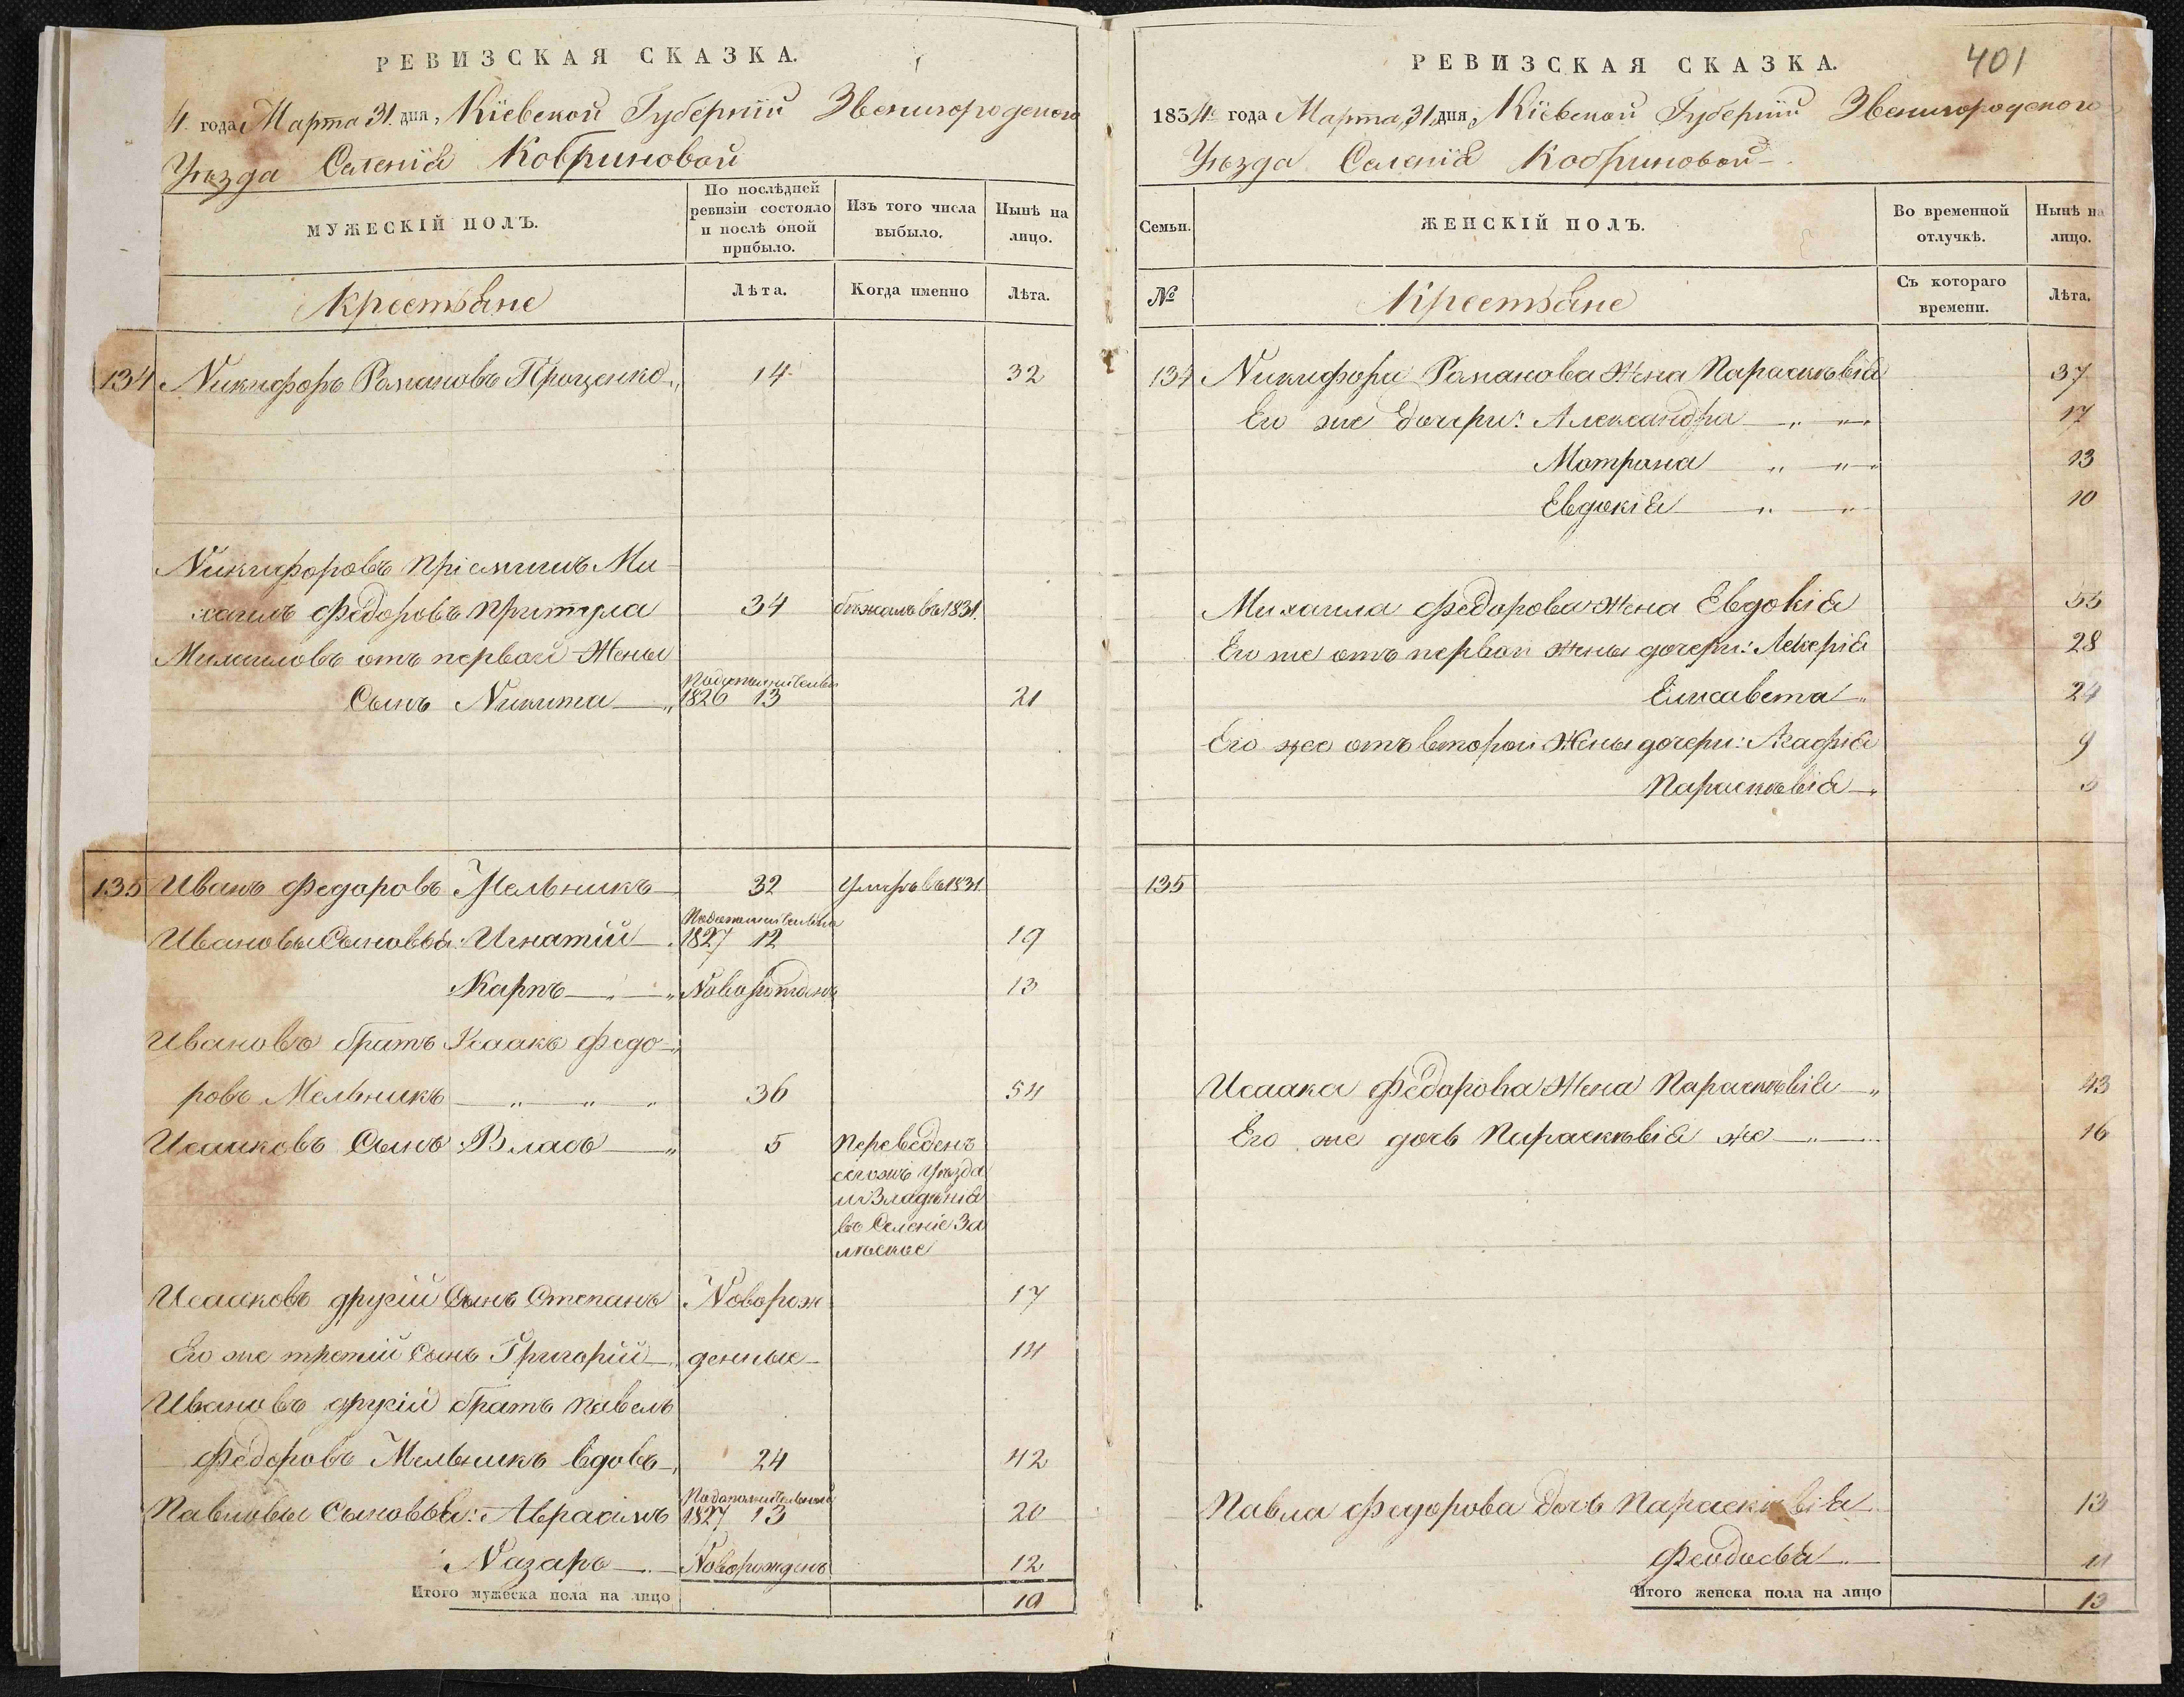 РЕВИЗСКАЯ СКАЗКА.
4. года Марта 31. дня, Кіевской Губерніи Звенигородского
Уѣзда Селенія Кобриновой
МУЖЕСКІЙ ПОЛЪ.
По послѣдней ревизіи состояло и послѣ оной прибыло.
Изъ того числа выбыло.
Нынѣ на лицо.
Крестьяне
Лѣта.
Когда именно
Лѣта.
134 Никифоръ Романовъ Проценко 14. 32
Никифоровъ пріемышъ Ми
хаилъ Федоровъ Притула 34 бѣжалъ въ 1831.
Михаиловъ отъ первой Жены
Сынъ Никита 1826 13 21
135 Иванъ Федоровъ Мельникъ 32 Умеръ въ 1831.
Ивановы Сыновья: Игнатій 1827 12 19
Карпъ Новорожденъ 13
Ивановъ братъ Исаакъ Федо
ровъ Мельникъ 36 54
Исааковъ Сынъ Власъ 5 Переведенъ
сегожъ Уѣзда
и Владѣнія
въ Селеніе За
лѣское
Исааковъ другій Сынъ Степанъ Новорож 17
Его же третій Сынъ Григорій денные 14
Ивановъ другій братъ Павелъ
Федоровъ Мельникъ вдовъ 24 42
Павловы Сыновья: Аврасимъ 1827 13 20
Назаръ Новорожденъ 12
Итого мужеска пола на лицо 10
РЕВИЗСКАЯ СКАЗКА.
401
1834. года Марта 31 дня, Кіевской Губерніи Звенигородского
Уѣзда Селенія Кобриновой
Семьи.
ЖЕНСКІЙ ПОЛЪ.
Во временной отлучкѣ.
Нынѣ на лицо.
№
Крестьяне
Съ котораго времени.
Лѣта.
134 Никифора Романова Жена Параскѣвія 37
Его же дочери: Александра 17
Матрона 13
Евдокія 10
Михаила Федорова Жена Евдокія 53
Его же отъ первой жены дочери: Лекерія 28
Елисавета 24
Его же отъ второй Жены дочери: Агафія 9
Параскѣвія
135
Исаака Федорова Жена Параскѣвія 43
Его же дочь Параскѣвія же 16
Павла Федорова дочь Параскѣвія 13
Феодосья 11
Итого женска пола на лицо 13